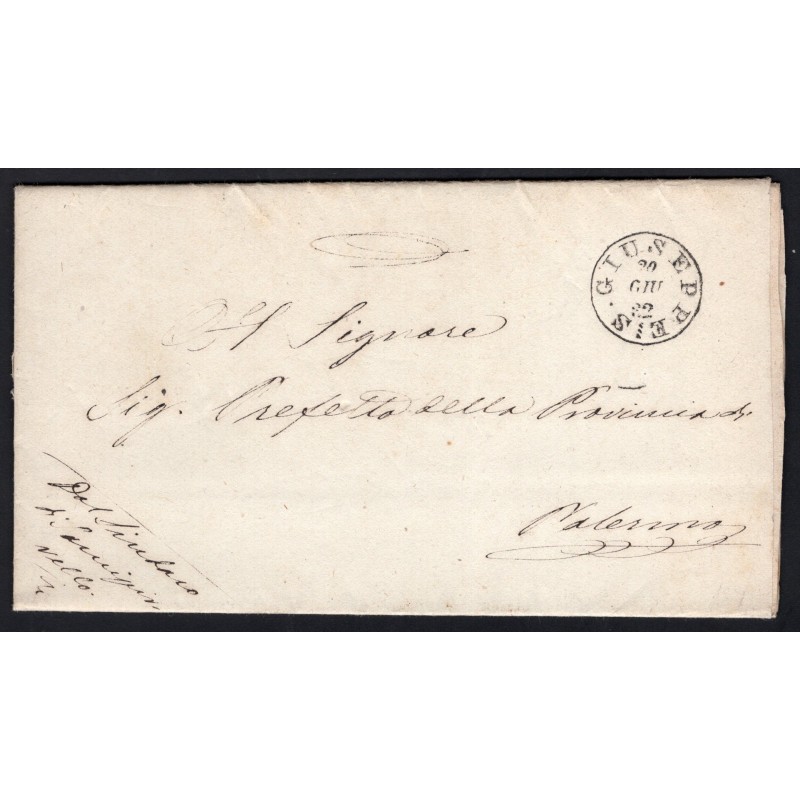 S. GIUSEPPE
20
GIU
62
Al Signore
Sig. Prefetto della Provincia di
Palermo
Dal Sindaco
di
vello